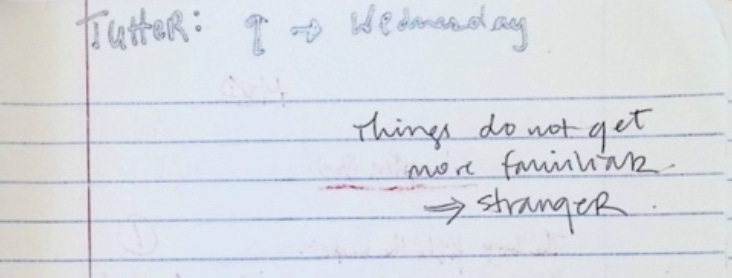 Tutter: ↑ → Wednesday
Things do not get
more familiar.
⇒ stranger.